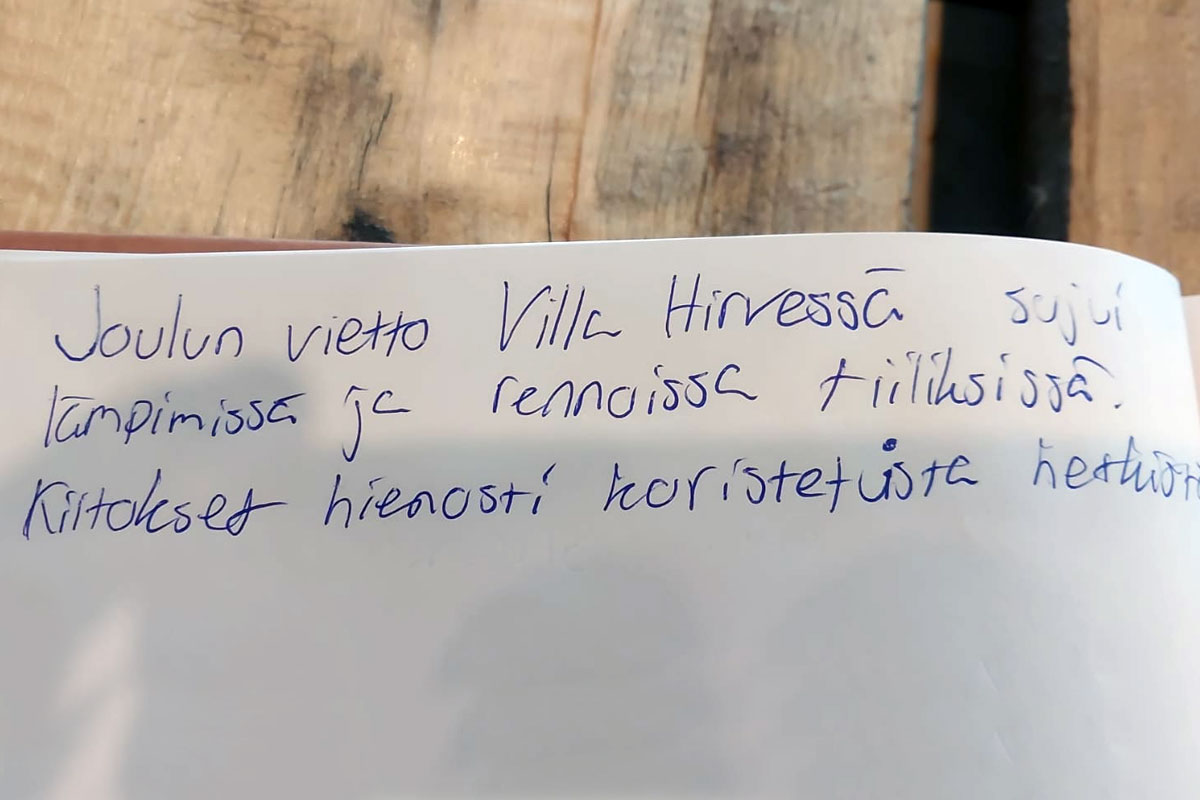 Joulun vietto Villa Hirvessä sujui
lämpimissä ja rennoissa tiiliksissä.
Kiitokset hienosti koristetuista